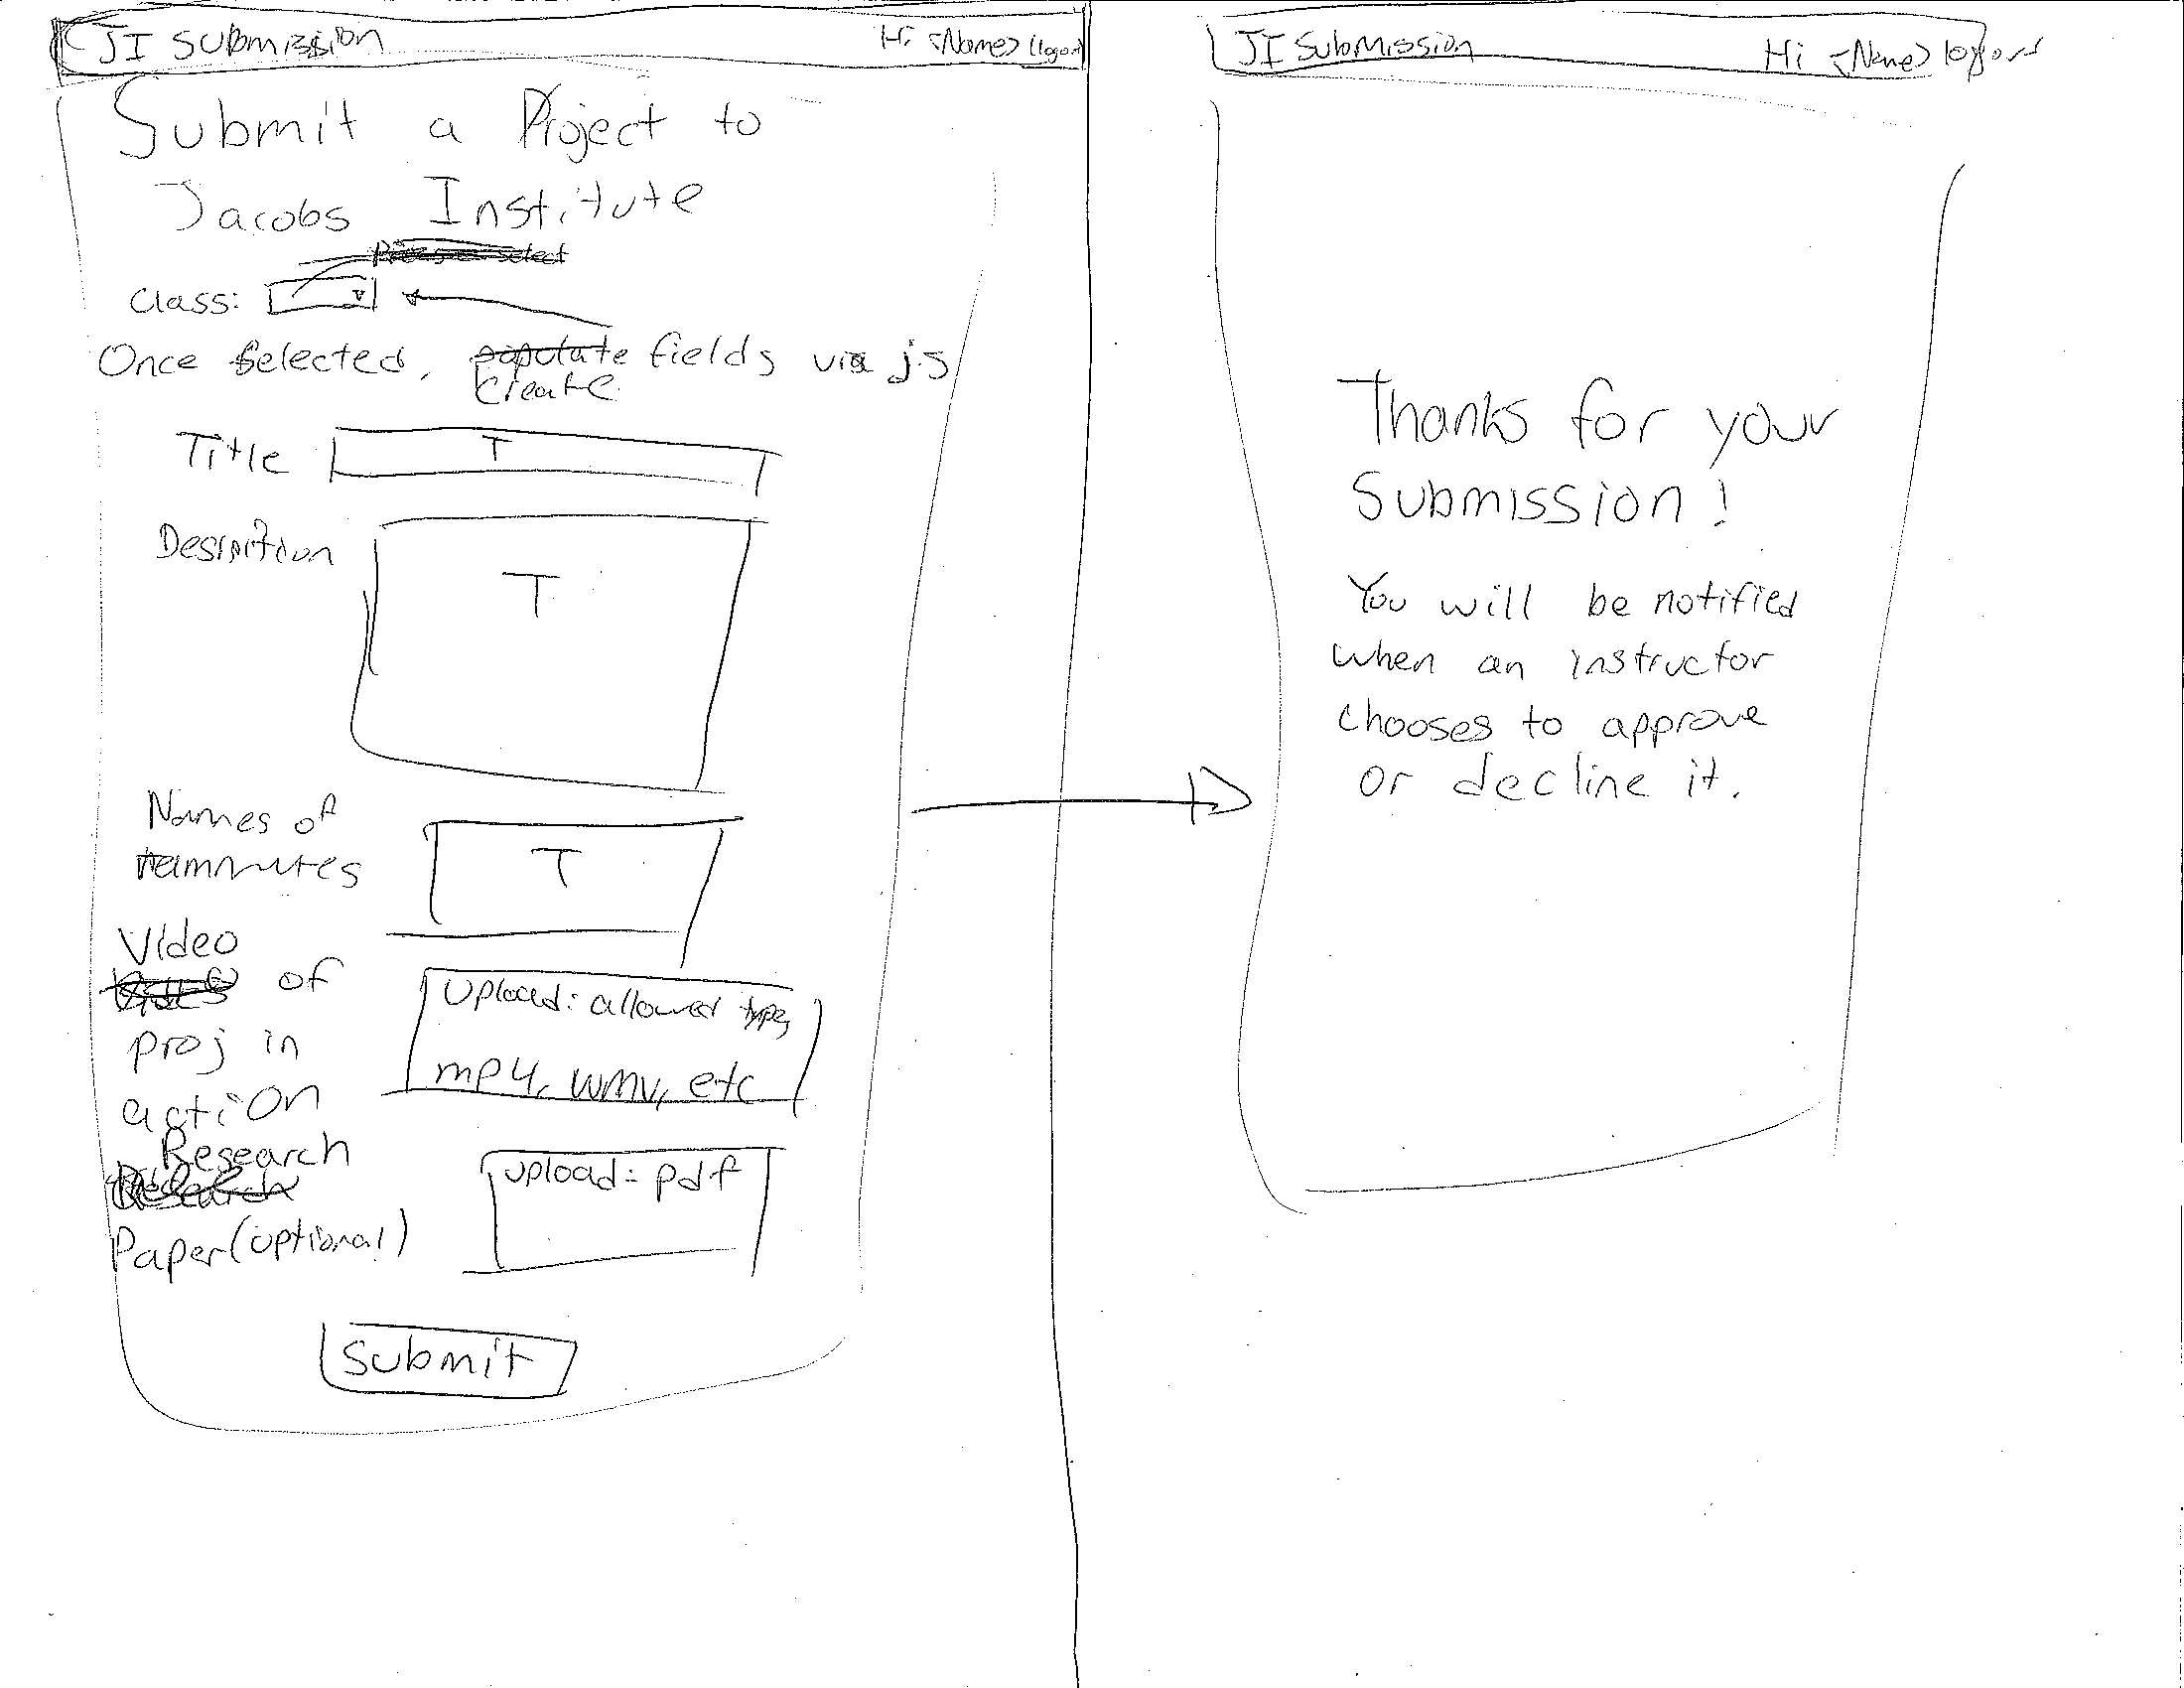 JI Submission
Hi <Name> (logout)
Submit a Project to
Jacobs Institute
Please select
Class:
Once selected, populate fields via js
create
Title
T
Desciption
T
Names of
teammates
T
Video
of
proj in
action
Upload: allowed types
mp4, wmv, etc
Research
Research
Paper (optional)
Upload: pdf
Submit
JI Submission
Hi <Name> logout
Thanks for your
Submission!
You will be notified
when an instructor
chooses to approve
or decline it.